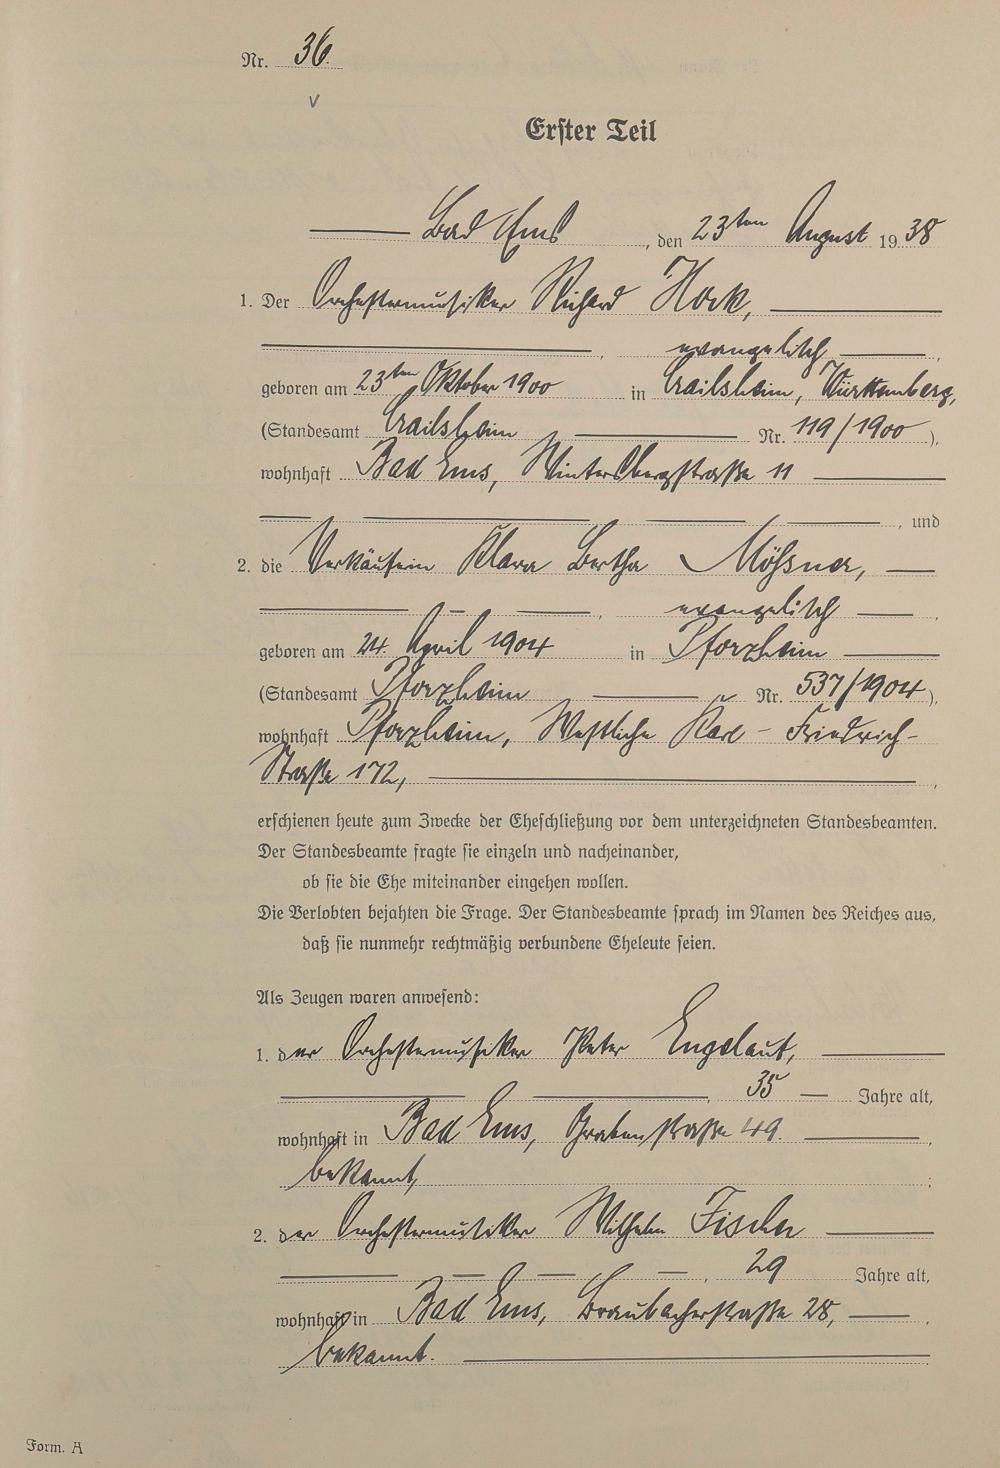 Nr. 36.
Erster Teil
Bad Ems, den 23ten August 1938
1. Der Orchestermusiker Richard Hock,
, evangelisch,
geboren am 23ten Oktober 1900 in Crailsheim, Württemberg,
(Standesamt Crailsheim Nr. 119/1900),
wohnhaft Bad Ems, Wintersbergstraße 11
, und
2. die Verkäuferin Klara Bertha Mößner,
, evangelisch
geboren am 24. April 1904 in Pforzheim
(Standesamt Pforzheim Nr. 537/1904),
wohnhaft Pforzheim, Westliche Karl-Friedrich-
Straße 172,
erschienen heute zum Zwecke der Eheschließung vor dem unterzeichneten Standesbeamten.
Der Standesbeamte fragte sie einzeln und nacheinander,
ob sie die Ehe miteinander eingehen wollen.
Die Verlobten bejahten die Frage. Der Standesbeamte sprach im Namen des Reiches aus,
daß sie nunmehr rechtmäßig verbundene Eheleute seien.
Als Zeugen waren anwesend:
1. der Orchestermusiker Peter Engelaut,
, 35 Jahre alt,
wohnhaft in Bad Ems, Grabenstraße 49.
bekannt,;
2. der Orchestermusiker Wilhelm Fischer
, 29 Jahre alt,
wohnhaft in Bad Ems, Braubacherstraße 28,
bekannt.
Form. A